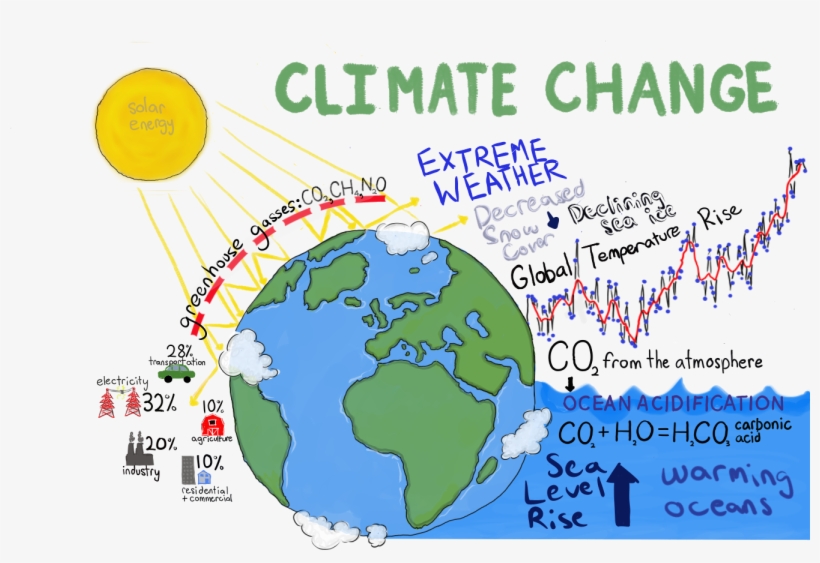 CLIMATE CHANGE
solar
energy
greenhouse gasses: CO₂, CH₄, N₂O
EXTREME
WEATHER
Decreased
Snow
Cover
Declining
sea ice
Global Temperature Rise
28%
transportation
electricity
32%
10%
agriculture
20%
industry
10%
residential
+ commercial
CO₂ from the atmosphere
OCEAN ACIDIFICATION
CO₂ + H₂O = H₂CO₃ carbonic
acid
Sea
Level
Rise
warming
oceans